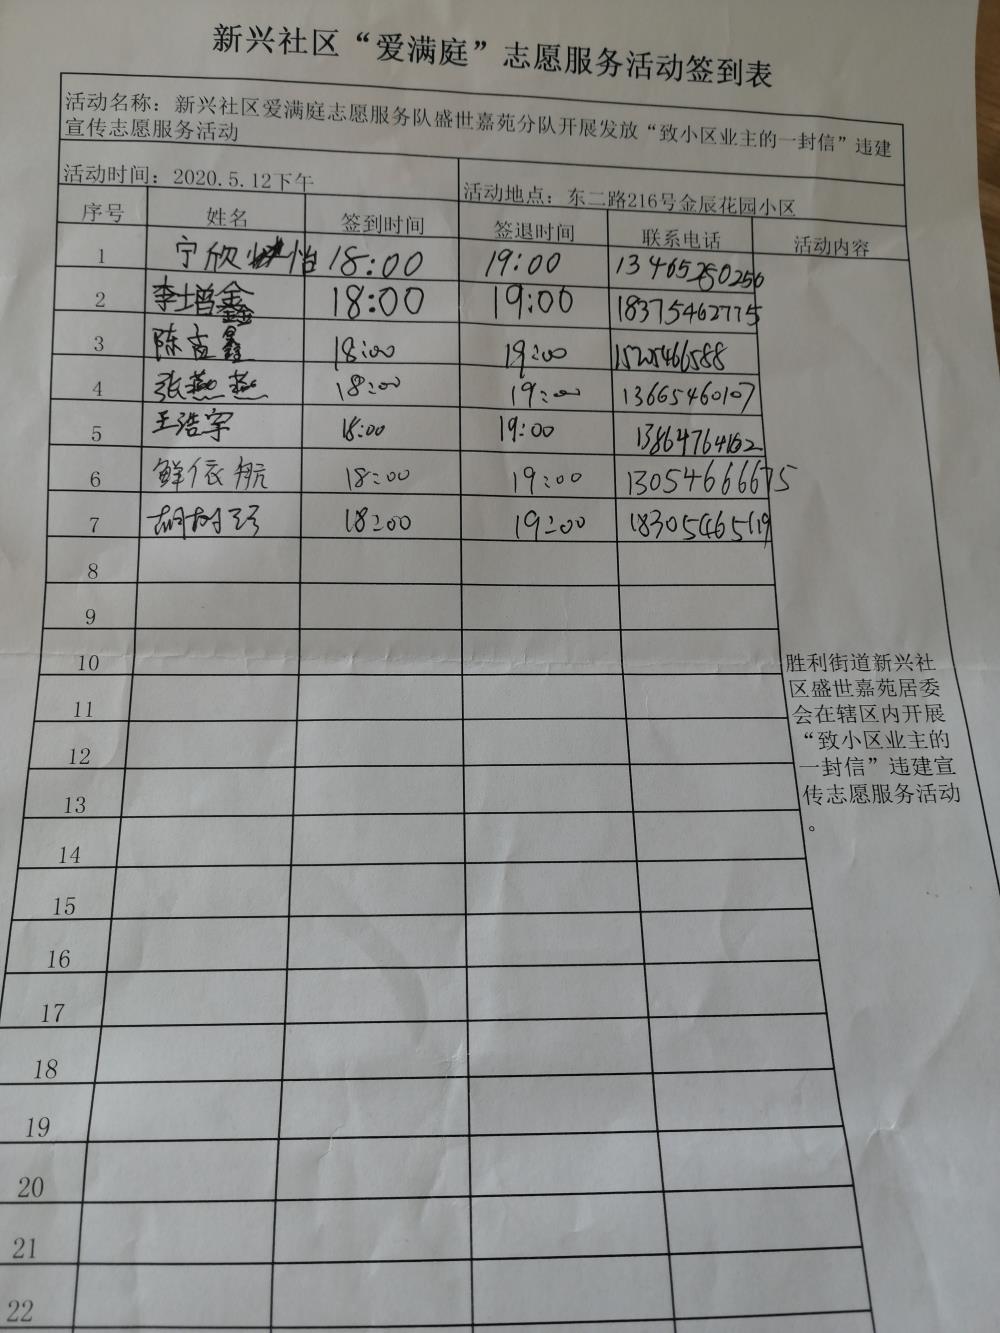 新兴社区“爱满庭”志愿服务活动签到表
活动名称：新兴社区爱满庭志愿服务队盛世嘉苑分队开展发放“致小区业主的一封信”违建
宣传志愿服务活动
活动时间：2020.5.12下午 活动地点：东二路216号金辰花园小区
序号 姓名 签到时间 签退时间 联系电话 活动内容
1 宁欣怡 18:00 19:00 13465280256
2 李增鑫 18:00 19:00 18375462775
3 陈 18:00 19:00 15205466588
4 张燕燕 18:00 19:00 13665460107
5 王浩宇 18:00 19:00
6 鲜依航 18:00 19:00 13054666675
7 胡树 18:00 19:00 18305465119
8
9
10
11
12
13
14
15
16
17
18
19
20
21
22
胜利街道新兴社
区盛世嘉苑居委
会在辖区内开展
“致小区业主的
一封信”违建宣
传志愿服务活动
。